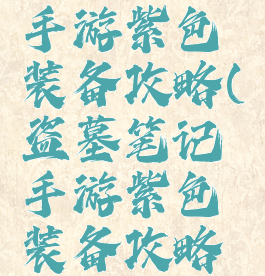 手游紫色
装备攻略(
盗墓笔记
手游紫色
装备攻略